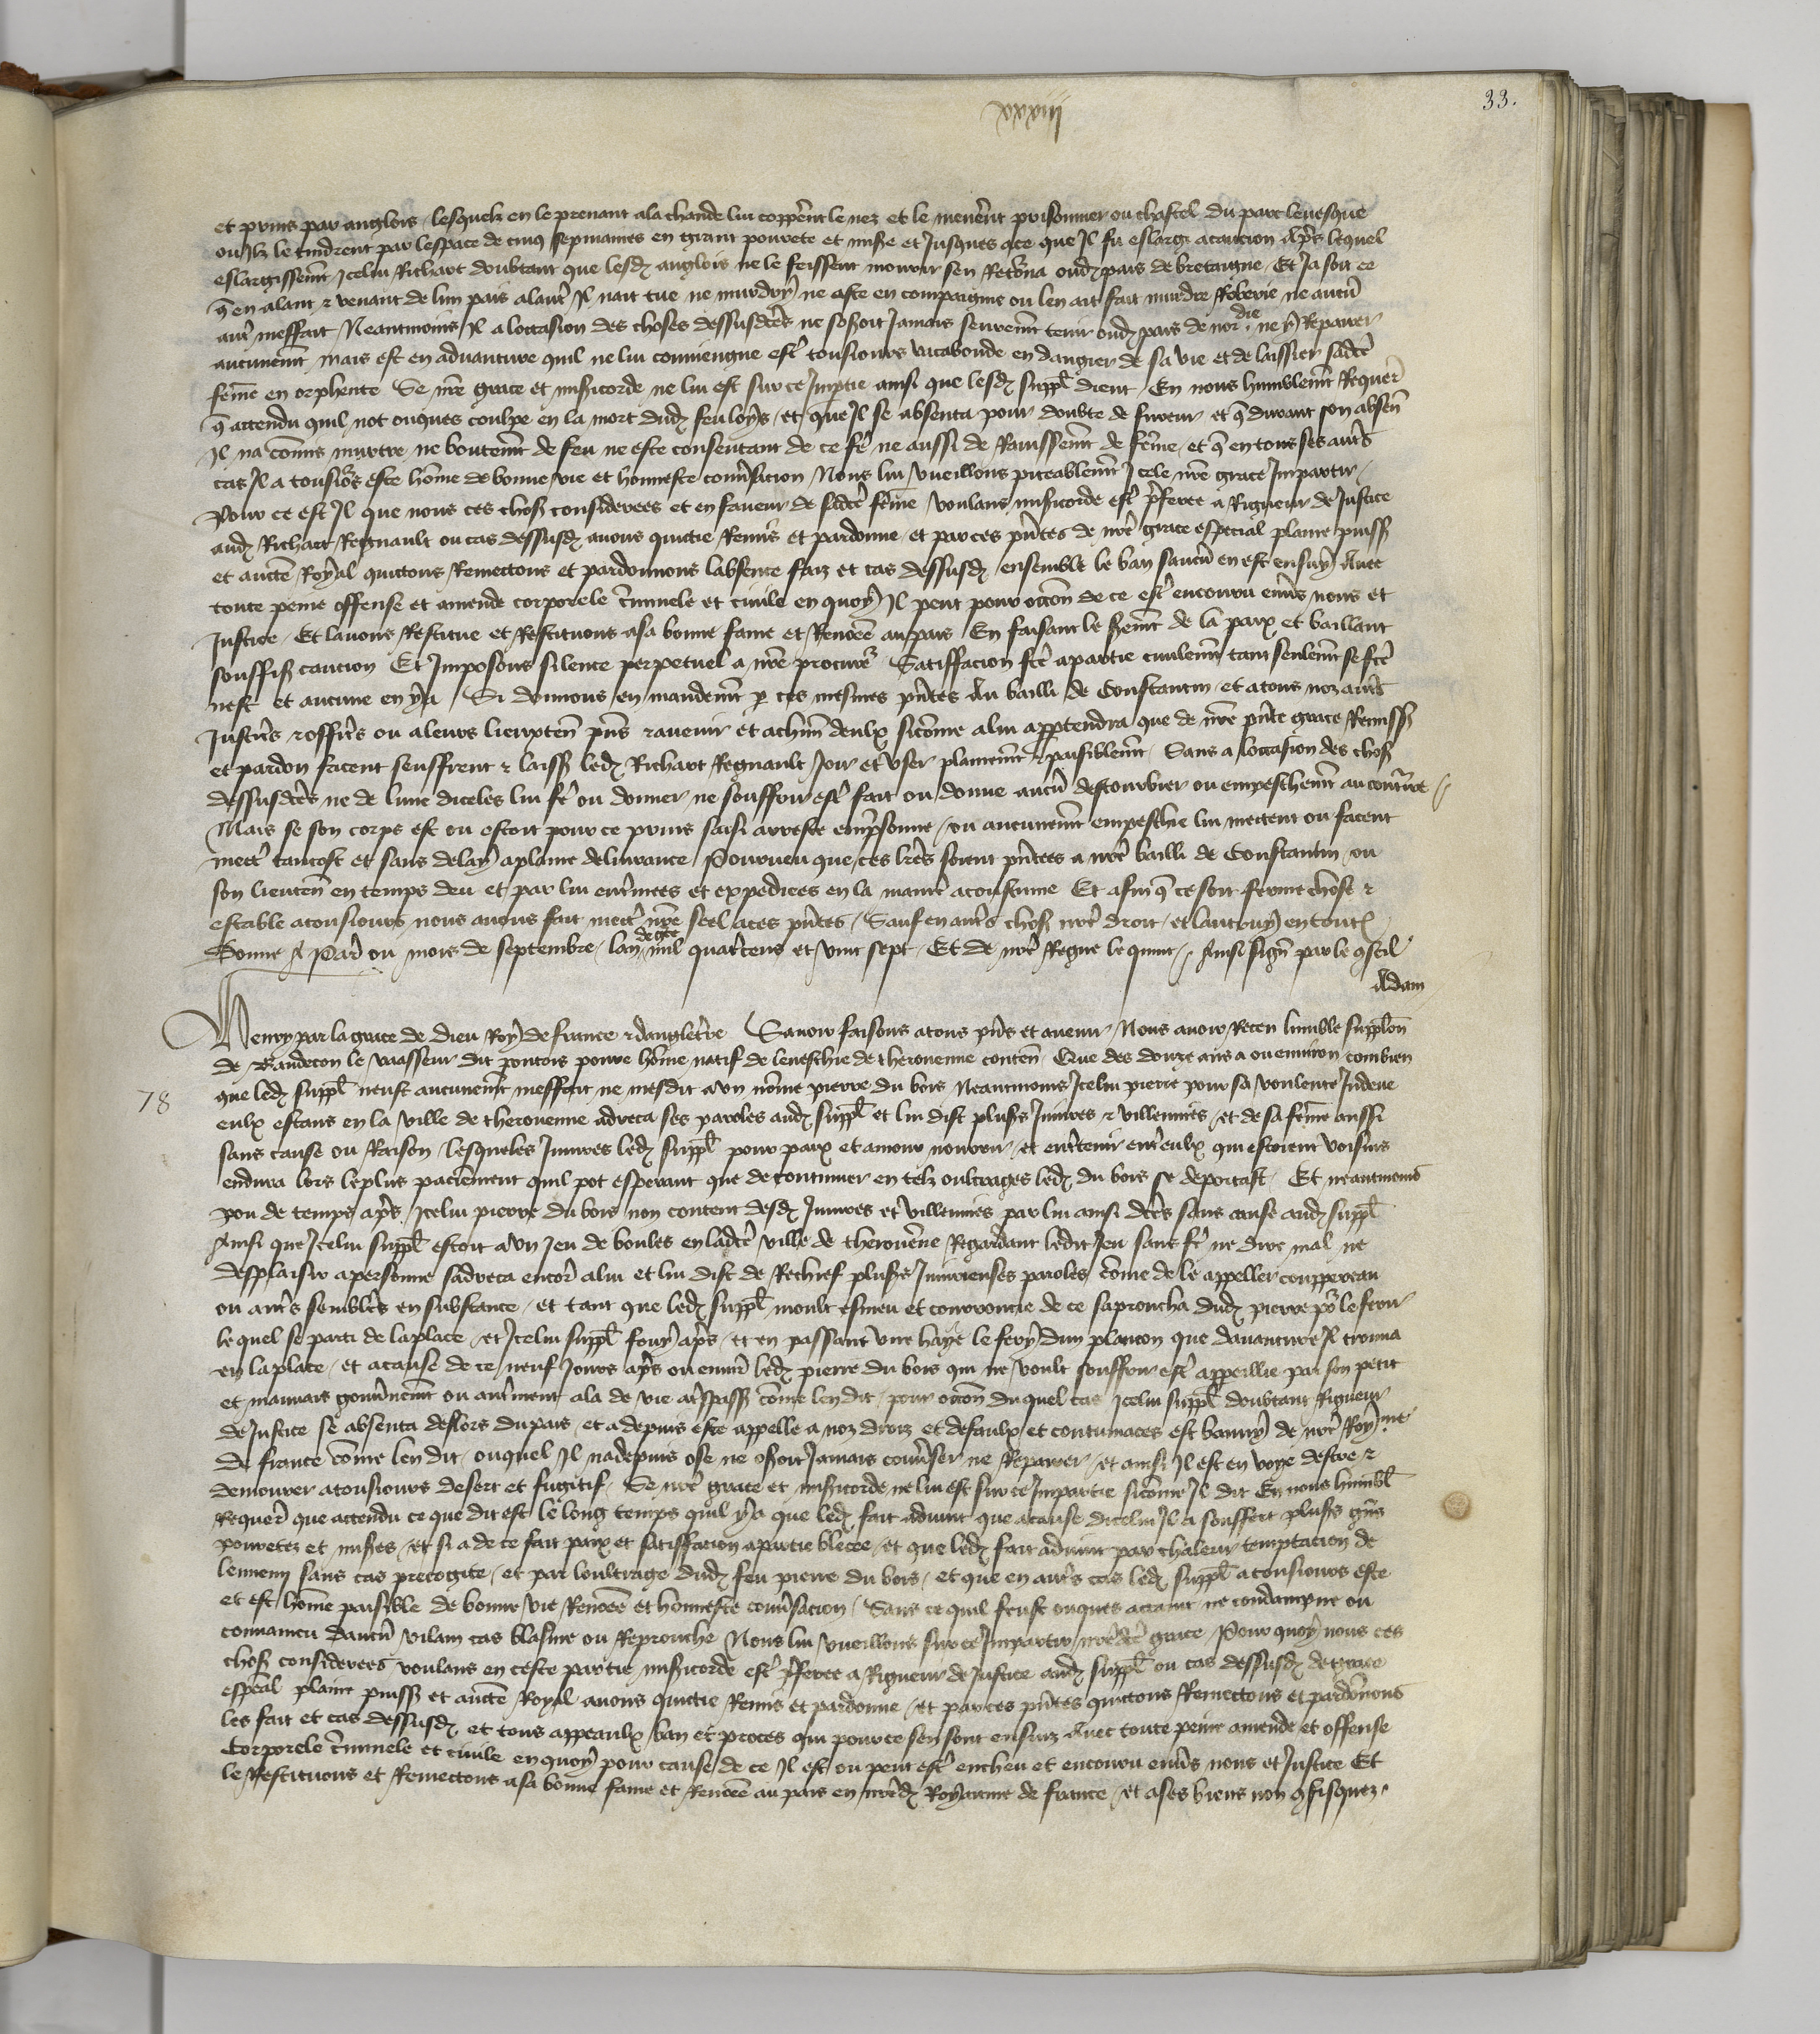 xxxiij
33.
et prins par anglois lesquelz en le prenant ala chaude lui copperẽnt le nez et le menerẽnt prisonnier ou chastel du parc levesque
ou Ilz le tindrent par lespace de cinq sepmaines en grant pouvrete et mise et Jusques ace que Il fu eslargi acaucion Apr̃s lequel
eslargissemt̃ Icelui Richart doubtant que lesd anglois ne le feissent mourir sen Retourna oud pais de bretaigne Et Ja soit ce
q̃ en alant & venant de lun pais alautr̃ Il nait tue ne murdry ne este en compaignie ou len ait fait murdre Roberie ne aucũ
autr̃ meffait Neantmoins Il a loccasion des choses dessusdc̃es ne oseroit Jamais seuremt̃ tenir oud pais de nor die ne y Repairer
aucunemt̃ mais est en adventure quil ne lui conviengne estr̃ tousiours vacabonde en dangier de sa vie et de laissier sadc̃e
fem̃e en orphente Se nr̃e grace et misicorde ne lui est sur ce Imptie ainsi que lesd suppl̃ dient En nous humblemt̃ Requer̃
q̃ attendu quil not onques coulpe en la mort dud feu loys et que Il se absenta pour doubte de fureur et q̃ durant son absen̄
Il na com̃is murtre ne boutemt̃ de feu ne este consentant de ce fr̃e ne aussi de Ravissemt̃ de fem̃e et q̃ en tous ses autr̃s
cas Il a tousiõs este hom̃e de bonne vie et honneste conv̄sacion Nous lui vueillons piteablemt̃ Icele nr̃e grace Impartir
Pour ce est Il que nous ces chos considerees et en faveur de sadc̃e fem̃e voulans misicorde estr̃ p̃feree a Rigueur de Justice
aud Richart Regnault ou cas dessusd avons quictie Remis et pardonne et par ces pñtes de nr̃e grace especial plaine puiss
et aucte Royal quictons Remectons et pardonnons labsence faiz et cas dessusd ensemble le ban saucũ en est ensuy Avec
toute peine offense et amende corporele c̃minele et civile en quoy Il peut pour occõn de ce estr̃ encouru envs̃ nous et
Justice Et lavons Restitue et Restituons asa bonne fame et Renõee au pais En faisant le semt̃ de la paix et baillant
souffis caucion Et Imposons silence perpetuel a nr̃e procurẽ Satiffacion fcẽ apartie civilemt̃ tant seulemt̃ se fcẽ
nest et aucune en y a Si donnons en mandemt̃ p ces mesmes pñtes Au bailli de Constantin et atous noz autr̃s
Justicr̃s & officr̃s ou a leurs lieuxten̄ pñs & avenir et achun̄ deulx sicom̃e alui appptendra que de nr̃e pñte grace Remiss
et pardon facent seuffrent & laiss led Richart Regnault Joir et user plainemt̃ & paisiblemt̃ Sans a loccasion des chos
dessusdc̃es ne de lune diceles lui fr̃e ou donner ne souffrir estr̃ fait ou donne aucũ destourbier ou empeschemt̃ au contr̃e
Mais se son corps est ou estoit pour ce prins saisi arreste emp̃sonne ou aucunemt̃ empeschie lui mectent ou facent
mectr̃ tantost et sans delay aplaine delivrance Pourveu que ces lr̃es soient pñtees a nr̃e bailli de Constantin ou
son lieuten̄ en temps deu et par lui entr̃inees et expedices en la manir̃ acoustume Et afin q̃ ce soit ferme chose &
estable atousiours nous avons fait mectr̃ nr̃e seel aces pñtes Sauf en autr̃s chos nr̃e droit et lautruy en tout
Donne A Paris ou mois de septembre lan de gce mil quatr̃cens et vint sept Et de nr̃e Regne le quint Ainsi sign̄ par le cõseil
Adam
78
Henry par la grace de dieu Roy de france & dangletr̃re Savoir faisons atous pñs et avenir Nous avoir Receu lumble supplõn
de Baudecon le vaasseur dit pontois povre hom̃e natif de leveschie de therouenne conten̄ Que des douze ans a ou environ combien
que led suppl̃ neust aucunemt̃ meffait ne mesdit a un nom̃e pierre du bois Neantmoins Icelui pierre pour sa voulente Indeue
eulx estans en la ville de therouenne adreca ses paroles aud suppl̃ et lui dist plusrs Iniures & villennies et de sa fem̃e aussi
sans cause ou Raison lesqueles Iniures led suppl̃ pour paix et amour nourrir et entr̃tenir entr̃eulx qui estoient voisins
endura lors le plus paciem̃ent quil pot esperant que de continuer en telz oultrages led du bois se deportast Et neantmoins
pou de temps apr̃s Icelui pierre du bois non content desd Iniures et villennies par lui ainsi dc̃es sans cause aud suppl̃
Ainsi que Icelui suppl̃ estoit a un Jeu de boules en ladc̃e ville de therouen̄e Regardant ledit Jeu sans fr̃e ne dire mal ne
desplaisir apersonne sadreca encor̃ alui et lui dist de Rechief plusrs Iniurieuses paroles com̃e de le appeller couppereau
ou autr̃s semblẽs en substance et tant que led suppl̃ moult esmeu et courroucie de ce saproucha dud pierre põ le ferir
lequel se parti de laplace et Icelui suppl̃ fouy apr̃s et en passant une haye le fery dun plancon que davanture Il trouva
en la place et acause de ce neuf Jours apr̃s ou envir̃ led pierre du bois qui ne voult souffrir estr̃ appeillie par son petit
et mauvais gouv̄nemt̃ ou autr̃ment ala de vie atr̃spass com̃e len dit pour occõn du quel cas Icelui suppl̃ doubtant Rigueur
de Justice se absenta deslors du pais et adepuis este appelle a noz droiz et defaulx et contumaces est banny de nr̃e Roy me
de france com̃e len dit ouquel Il nadepuis ose ne oseroit Jamais conv̄ser ne Repairer et ainsi Il est en voye destre &
demourer atousiours desert et fugitif Se nr̃e grace et misicorde ne lui est sur ce Impartie sicom̃e Il dit En nous humbl̃
Requer̃ que attendu ce que dit est le long temps quil y a que led fait advint que acause dicelui Il a souffert plusrs gñs
pouvretez et mises et si a de ce fait paix et satiffacion apartie blecee et que led fait advint par chaleur temptacion de
lennemi sans cas precogite et par loultrage dud feu pierre du bois et que en autr̃s cas led suppl̃ atousiours este
et est hom̃e paisible de bonne vie Renõee et honneste conv̄sacion Sans ce quil feust onques actaint ne condampne ou
convaincu daucũ vilain cas blasme ou Reprouche Nous lui vueillons sur ce Impartir nr̃edc̃e grace Pour quoy nous ces
chos considerees voulans en ceste partie misicorde estr̃ p̃feree a Rigueur de Justice aud suppl̃ ou cas dessusd de grace
especal plaine puiss et aucte Royal avons quictie Remis et pardonne et par ces pñtes quictons Remectons et pardon̄ons
les fait et cas dessusd et tous appeaulx ban et proces qui pour ce sen sont ensuiz Avec toute peine amende et offense
Corporele c̃minele et civile en quoy pour cause de ce Il est ou peut estr̃ encheu et encouru envs̃ nous et Justice Et
le Restituons et Remectons asa bonne fame et Renõee au pais en nr̃ed Royaume de france et ases biens non cõfisquez